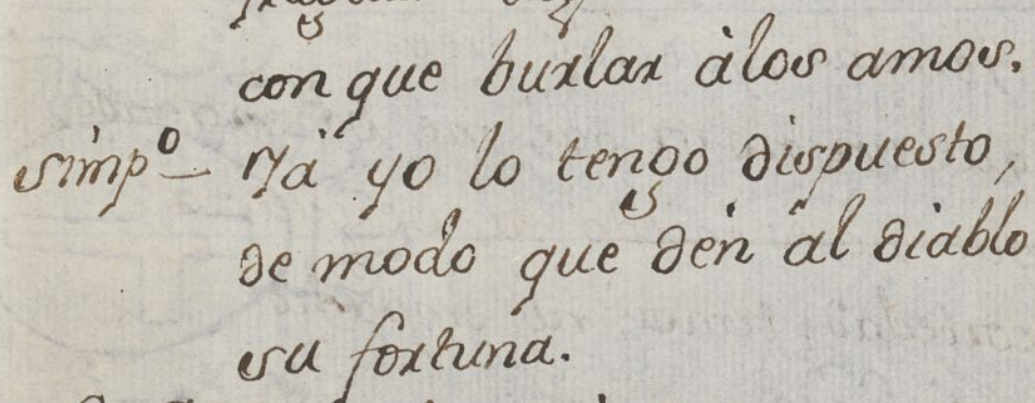 con que burlar àlos amos.
simp.º - Ya yo lo tengo dispuesto,
de modo que den àl diablo
su fortuna.